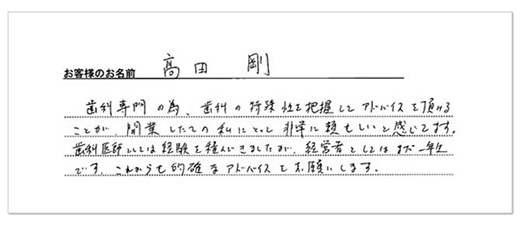 お客様のお名前 高田 剛
歯科専門の為、歯科の特殊性を把握してアドバイスを頂ける
ことが、開業したての私にとって非常に頼もしいと感じてます。
歯科医師としては経験を積んできましたが、経営者としてはまだ一年生
です。これからも的確なアドバイスをお願いします。